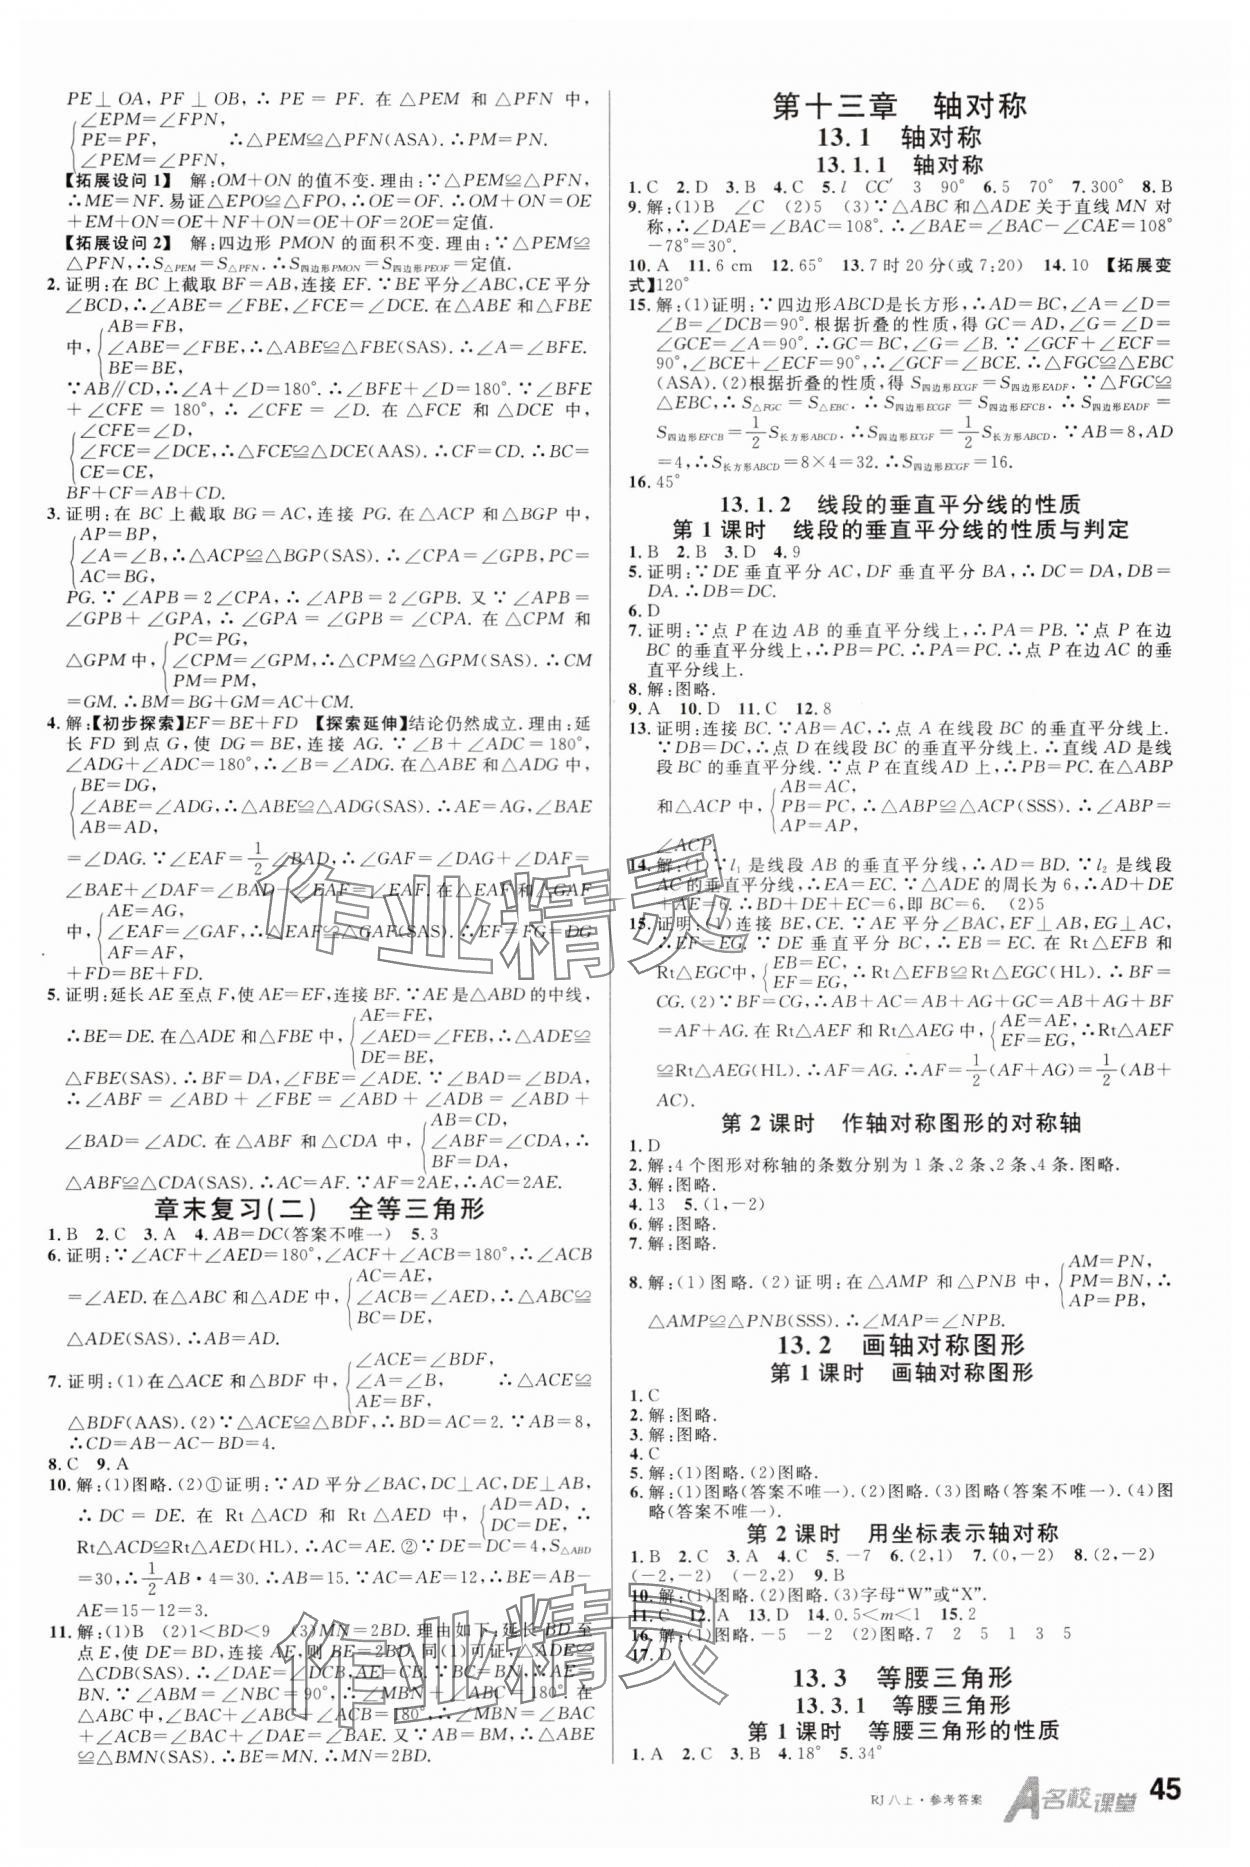 PE⊥OA, PF⊥OB, ∴PE=PF. 在△PEM 和△PFN 中,
∠EPM=∠FPN,
PE=PF, ∴△PEM≌△PFN(ASA). ∴PM=PN.
∠PEM=∠PFN,
【拓展设问1】 解:OM+ON的值不变.理由:∵△PEM≌△PFN,
∴ME=NF. 易证△EPO≌△FPO, ∴OE=OF. ∴OM+ON=OE
+EM+ON=OE+NF+ON=OE+OF=2OE=定值.
【拓展设问2】 解:四边形 PMON 的面积不变.理由:∵△PEM≌
△PFN, ∴S△PEM=S△PFN. ∴S四边形PMON=S四边形PEOF=定值.
2.证明:在 BC 上截取 BF=AB,连接 EF. ∵BE 平分∠ABC,CE 平分
∠BCD, ∴∠ABE=∠FBE,∠FCE=∠DCE. 在△ABE 和△FBE
AB=FB,
中, ∠ABE=∠FBE, ∴△ABE≌△FBE(SAS). ∴∠A=∠BFE.
BE=BE,
∵AB∥CD, ∴∠A+∠D=180°. ∴∠BFE+∠D=180°. ∵∠BFE
+∠CFE=180°, ∴∠CFE=∠D. 在△FCE 和△DCE 中,
∠CFE=∠D,
∠FCE=∠DCE, ∴△FCE≌△DCE(AAS). ∴CF=CD. ∴BC=
CE=CE,
BF+CF=AB+CD.
3.证明:在 BC 上截取 BG=AC,连接 PG. 在△ACP 和△BGP 中,
AP=BP,
∠A=∠B, ∴△ACP≌△BGP(SAS). ∴∠CPA=∠GPB,PC=
AC=BG,
PG. ∵∠APB=2∠CPA, ∴∠APB=2∠GPB. 又∵∠APB=
∠GPB+∠GPA, ∴∠GPA=∠GPB=∠CPA. 在△CPM 和
PC=PG,
△GPM 中, ∠CPM=∠GPM, ∴△CPM≌△GPM(SAS). ∴CM
PM=PM,
=GM. ∴BM=BG+GM=AC+CM.
4.解:【初步探索】EF=BE+FD 【探索延伸】结论仍然成立.理由:延
长 FD 到点 G,使 DG=BE,连接 AG. ∵∠B+∠ADC=180°,
∠ADG+∠ADC=180°, ∴∠B=∠ADG. 在△ABE 和△ADG 中,
BE=DG,
∠ABE=∠ADG, ∴△ABE≌△ADG(SAS). ∴AE=AG,∠BAE
AB=AD,
=∠DAG. ∵∠EAF=1/2∠BAD, ∴∠GAF=∠DAG+∠DAF=
∠BAE+∠DAF=∠BAD-∠EAF=∠EAF. 在△EAF 和△GAF
AE=AG,
中, ∠EAF=∠GAF, ∴△EAF≌△GAF(SAS). ∴EF=FG=DG
AF=AF,
+FD=BE+FD.
5.证明:延长 AE 至点 F,使 AE=EF,连接 BF. ∵AE 是△ABD 的中线,
AE=FE,
∴BE=DE. 在△ADE 和△FBE 中, ∠AED=∠FEB, ∴△ADE≌
DE=BE,
△FBE(SAS). ∴BF=DA,∠FBE=∠ADE. ∵∠BAD=∠BDA,
∴∠ABF=∠ABD+∠FBE=∠ABD+∠ADB=∠ABD+
∠BAD=∠ADC. 在△ABF 和△CDA 中,
AB=CD,
∠ABF=∠CDA, ∴
BF=DA,
△ABF≌△CDA(SAS). ∴AC=AF. ∵AF=2AE, ∴AC=2AE.
章末复习(二) 全等三角形
1.B 2.C 3.A 4.AB=DC(答案不唯一) 5.3
6.证明:∵∠ACF+∠AED=180°,∠ACF+∠ACB=180°, ∴∠ACB
AC=AE,
=∠AED. 在△ABC 和△ADE 中, ∠ACB=∠AED, ∴△ABC≌
BC=DE,
△ADE(SAS). ∴AB=AD.
∠ACE=∠BDF,
7.证明:(1)在△ACE 和△BDF 中, ∠A=∠B, ∴△ACE≌
AE=BF,
△BDF(AAS). (2)∵△ACE≌△BDF, ∴BD=AC=2. ∵AB=8,
∴CD=AB-AC-BD=4.
8.C 9.A
10.解:(1)图略. (2)①证明:∵AD 平分∠BAC,DC⊥AC,DE⊥AB,
∴DC=DE. 在 Rt△ACD 和 Rt△AED 中, AD=AD, ∴
DC=DE.
Rt△ACD≌Rt△AED(HL). ∴AC=AE. ②∵DE=DC=4,S△ABD
=30, ∴1/2AB·4=30. ∴AB=15. ∵AC=AE=12, ∴BE=AB-
AE=15-12=3.
11.解:(1)B (2)1<BD<9 (3)MN=2BD.理由如下:延长 BD 至
点 E,使 DE=BD,连接 AE,则 BE=2BD. 同(1)可证,△ADE≌
△CDB(SAS). ∴∠DAE=∠DCB,AE=CB. ∵BC=BN, ∴AE=
BN. ∵∠ABM=∠NBC=90°, ∴∠MBN+∠ABC=180°. 在
△ABC 中,∠ABC+∠ACB+∠BAC=180°, ∴∠MBN=∠BAC
+∠ACB=∠BAC+∠DAE=∠BAE. 又∵AB=BM, ∴△ABE
≌△BMN(SAS). ∴BE=MN. ∴MN=2BD.
第十三章 轴对称
13.1 轴对称
13.1.1 轴对称
1.C 2.D 3.B 4.C 5.l CC′ 3 90° 6.5 70° 7.300° 8.B
9.解:(1)B ∠C (2)5 (3)∵△ABC 和△ADE 关于直线 MN 对
称, ∴∠DAE=∠BAC=108°. ∴∠BAE=∠BAC-∠CAE=108°
-78°=30°.
10.A 11.6 cm 12.65° 13.7时20分(或7:20) 14.10 【拓展变
式】120°
15.解:(1)证明:∵四边形ABCD是长方形, ∴AD=BC,∠A=∠D=
∠B=∠DCB=90°. 根据折叠的性质,得 GC=AD,∠G=∠D=
∠GCE=∠A=90°. ∴GC=BC,∠G=∠B. ∵∠GCF+∠ECF=
90°,∠BCE+∠ECF=90°, ∴∠GCF=∠BCE. ∴△FGC≌△EBC
(ASA). (2)根据折叠的性质,得 S四边形ECGF=S四边形EADF. ∵△FGC≌
△EBC, ∴S△FGC=S△EBC. ∴S四边形ECGF=S四边形EFCB. ∴S四边形EADF=
S四边形EFCB=1/2S长方形ABCD. ∴S四边形ECGF=1/2S长方形ABCD. ∵AB=8,AD
=4, ∴S长方形ABCD=8×4=32. ∴S四边形ECGF=16.
16.45°
13.1.2 线段的垂直平分线的性质
第1课时 线段的垂直平分线的性质与判定
1.B 2.B 3.D 4.9
5.证明:∵DE 垂直平分 AC,DF 垂直平分 BA, ∴DC=DA,DB=
DA. ∴DB=DC.
6.D
7.证明:∵点 P 在边 AB 的垂直平分线上, ∴PA=PB. ∵点 P 在边
BC 的垂直平分线上, ∴PB=PC. ∴PA=PC. ∴点 P 在边 AC 的垂
直平分线上.
8.解:图略.
9.A 10.D 11.C 12.8
13.证明:连接 BC. ∵AB=AC, ∴点 A 在线段 BC 的垂直平分线上.
∵DB=DC, ∴点 D 在线段 BC 的垂直平分线上. ∴直线 AD 是线
段 BC 的垂直平分线. ∵点 P 在直线 AD 上, ∴PB=PC. 在△ABP
AB=AC,
和△ACP 中, PB=PC, ∴△ABP≌△ACP(SSS). ∴∠ABP=
AP=AP,
∠ACP.
14.解:(1)∵l1 是线段 AB 的垂直平分线, ∴AD=BD. ∵l2 是线段
AC 的垂直平分线, ∴EA=EC. ∵△ADE 的周长为6, ∴AD+DE
+AE=6. ∴BD+DE+EC=6,即 BC=6. (2)5
15.证明:(1)连接 BE,CE. ∵AE 平分∠BAC,EF⊥AB,EG⊥AC,
∴EF=EG. ∵DE 垂直平分 BC, ∴EB=EC. 在 Rt△EFB 和
Rt△EGC中, EB=EC, ∴Rt△EFB≌Rt△EGC(HL). ∴BF=
EF=EG,
CG. (2)∵BF=CG, ∴AB+AC=AB+AG+GC=AB+AG+BF
=AF+AG. 在 Rt△AEF 和 Rt△AEG 中, AE=AE, ∴Rt△AEF
EF=EG,
≌Rt△AEG(HL). ∴AF=AG. ∴AF=1/2(AF+AG)=1/2(AB+
AC).
第2课时 作轴对称图形的对称轴
1.D
2.解:4个图形对称轴的条数分别为1条、2条、2条、4条.图略.
3.解:图略.
4.13 5.(1,-2)
6.解:图略.
7.解:图略.
AM=PN,
8.解:(1)图略. (2)证明:在△AMP 和△PNB 中, PM=BN, ∴
AP=PB,
△AMP≌△PNB(SSS). ∴∠MAP=∠NPB.
13.2 画轴对称图形
第1课时 画轴对称图形
1.C
2.解:图略.
3.解:图略.
4.C
5.解:(1)图略.(2)图略.
6.解:(1)图略(答案不唯一).(2)图略.(3)图略(答案不唯一).(4)图
略(答案不唯一).
第2课时 用坐标表示轴对称
1.B 2.C 3.A 4.C 5.-7 6.(2,1) 7.(0,-2) 8.(2,-2)
(-2,-2) (-2,2) 9.B
10.解:(1)图略.(2)图略.(3)字母“W”或“X”.
11.C 12.A 13.D 14.0.5<m<1 15.2
16.解:(1)图略.-5 -2 (2)图略.7 2 5 1 3 5
17.D
13.3 等腰三角形
13.3.1 等腰三角形
第1课时 等腰三角形的性质
1.A 2.C 3.B 4.18° 5.34°
RJ八上·参考答案
A名校课堂
45
作业精灵
作业精灵